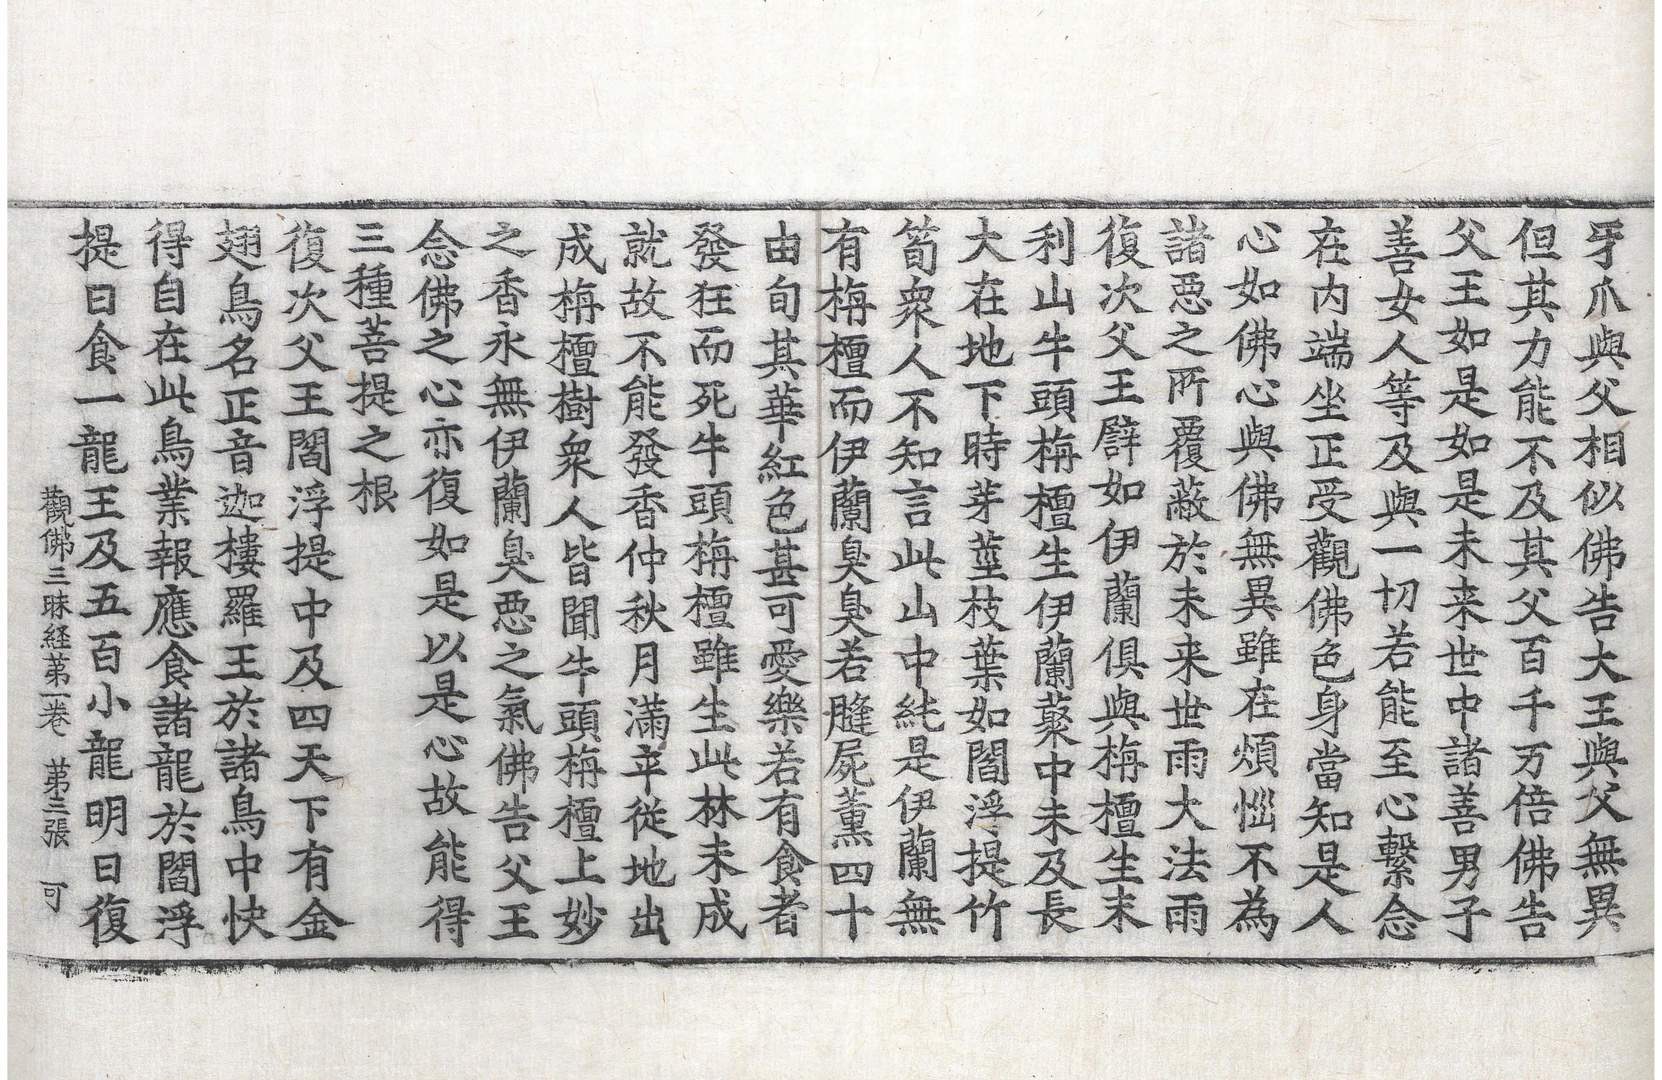 牙爪與父相似佛告大王與父無異
但其力能不及其父百千万倍佛告
父王如是如是未来世中諸善男子
善女人等及與一切若能至心繫念
在内端坐正受觀佛色身當知是人
心如佛心與佛無異雖在煩惱不為
諸惡之所覆蔽於未来世雨大法雨
復次父王譬如伊蘭俱與栴檀生末
利山牛頭栴檀生伊蘭藂中未及長
大在地下時芽莖枝葉如閻浮提竹
筍衆人不知言此山中純是伊蘭無
有栴檀而伊蘭臭臭若膖屍薰四十
由旬其華紅色甚可愛樂若有食者
發狂而死牛頭栴檀雖生此林未成
就故不能發香仲秋月滿卒從地出
成栴檀樹衆人皆聞牛頭栴檀上妙
之香永無伊蘭臭惡之氣佛告父王
念佛之心亦復如是以是心故能得
三種菩提之根
復次父王閻浮提中及四天下有金
翅鳥名正音迦樓羅王於諸鳥中快
得自在此鳥業報應食諸龍於閻浮
提日食一龍王及五百小龍明日復
觀佛三昧経第一卷 第三張 可